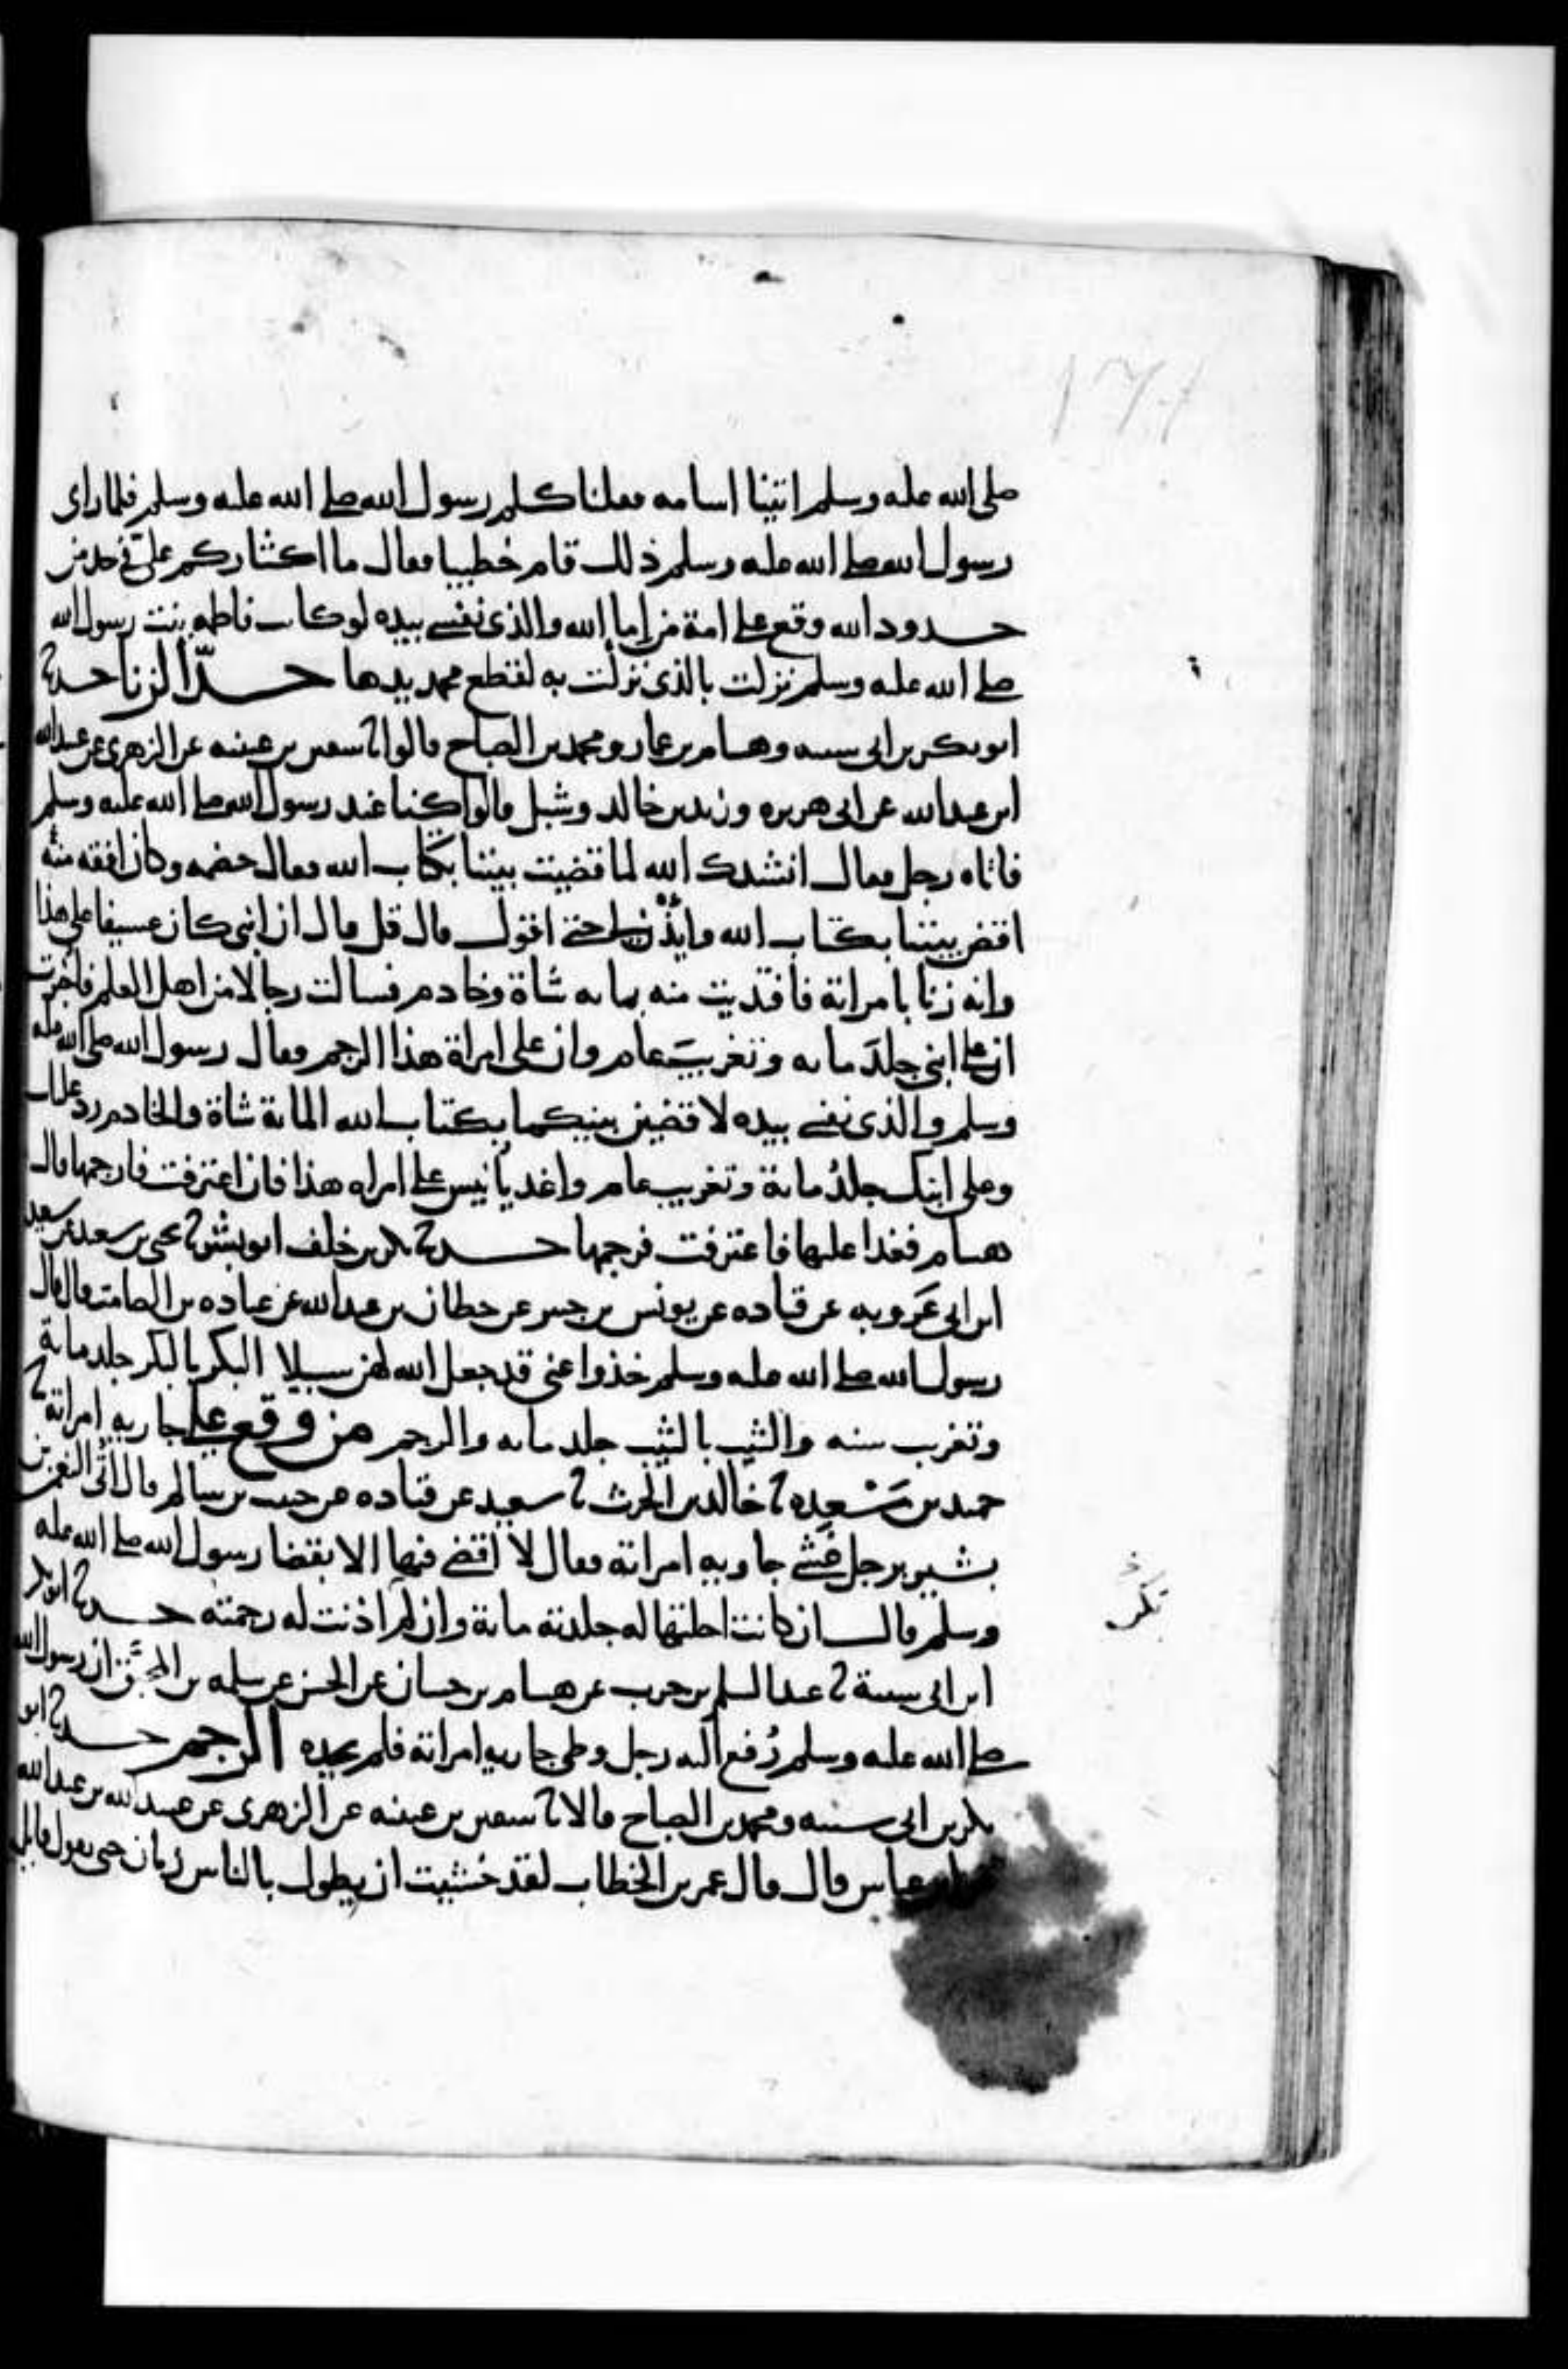 صلى الله عليه وسلم اتينا اسامه فقلنا كلم رسول الله صلى الله عليه وسلم فلما راى
رسول الله صلى الله عليه وسلم ذلك قام خطيبا فقال ما اكثاركم علىّ في حد من
حدود الله وقع على امة من اما الله والذى نفسي بيده لو كانت فاطمه بنت رسول الله
صلى الله عليه وسلم نزلت بالذى نزلت به لقطع محمد يدها حدّ الزنا حدثنا
ابو بكر بن ابى شيبه وهشام بن عمار ومحمد بن الصباح قالوا ثنا سفين بن عيينه عن الزهرى عن عبيد الله
ابن عبد الله عن ابى هريره وزيد بن خالد وشبل قالوا كنا عند رسول الله صلى الله عليه وسلم
فاتاه رجل فقال انشدك الله لما قضيت بيننا بكتاب الله فقال خصمه وكان افقه منه
اقض بيننا بكتاب الله وايذن لى حتى اقول قال قل قال ان ابنى كان عسيفا على هذا
وانه زنا بامراته فافتديت منه بمايه شاة وخادم فسالت رجالا من اهل العلم فاخبرت
ان على ابنى جلدَ مايه وتغريبَ عام وان على امراة هذا الرجم فقال رسول الله صلى الله عليه
وسلم والذى نفسي بيده لاقضين بينكما بكتاب الله الماية شاة والخادم رد عليك
وعلى ابنك جلدُ ماية وتغريب عام واغد يا نيس على امراه هذا فان اعترفت فارجمها قال
هشام فغدا عليها فاعترفت فرجمها حدثنا بكر بن خلف ابو بشر ثنا يحيى بن سعيد عن سعيد
ابن ابى عَروبه عن قتاده عن يونس بن جبير عن حطان بن عبد الله عن عباده بن الصامت قال قال
رسول الله صلى الله عليه وسلم خذوا عنى قد جعل الله لهن سبيلا البكر بالبكر جلد ماية
وتغرب سنه والثيب بالثيب جلد مايه والرجم من وقع على جاريه امراته ثنا
حميد بن مَسْعده ثنا خالد بن الحرث ثنا سعيد عن قتاده عن حبيب بن سالم قال اُتى النعمن بن
بشير برجل غشي جاريه امراته فقال لا اقضي فيها الا بقضا رسول الله صلى الله عليه
وسلم قال ان كانت احلتها له جلدته ماية وان لم اذنت له رجمته حدثنا ابو بكر
ابن ابى شيبة ثنا عبد السلم بن حرب عن هشام بن حسان عن الحسن عن سلمه بن المحبّق ان رسول الله
صلى الله عليه وسلم رُفع اليه رجل وطى جاريه امراته فلم يحده الرجم حدثنا ابو
بكر بن ابى شيبه ومحمد بن الصباح قالا ثنا سفين بن عيينه عن الزهرى عن عبيد الله بن عبد الله
عباس قال قال عمر بن الخطاب لقد خشيت ان يطول بالناس زمان حتى يقول قايل